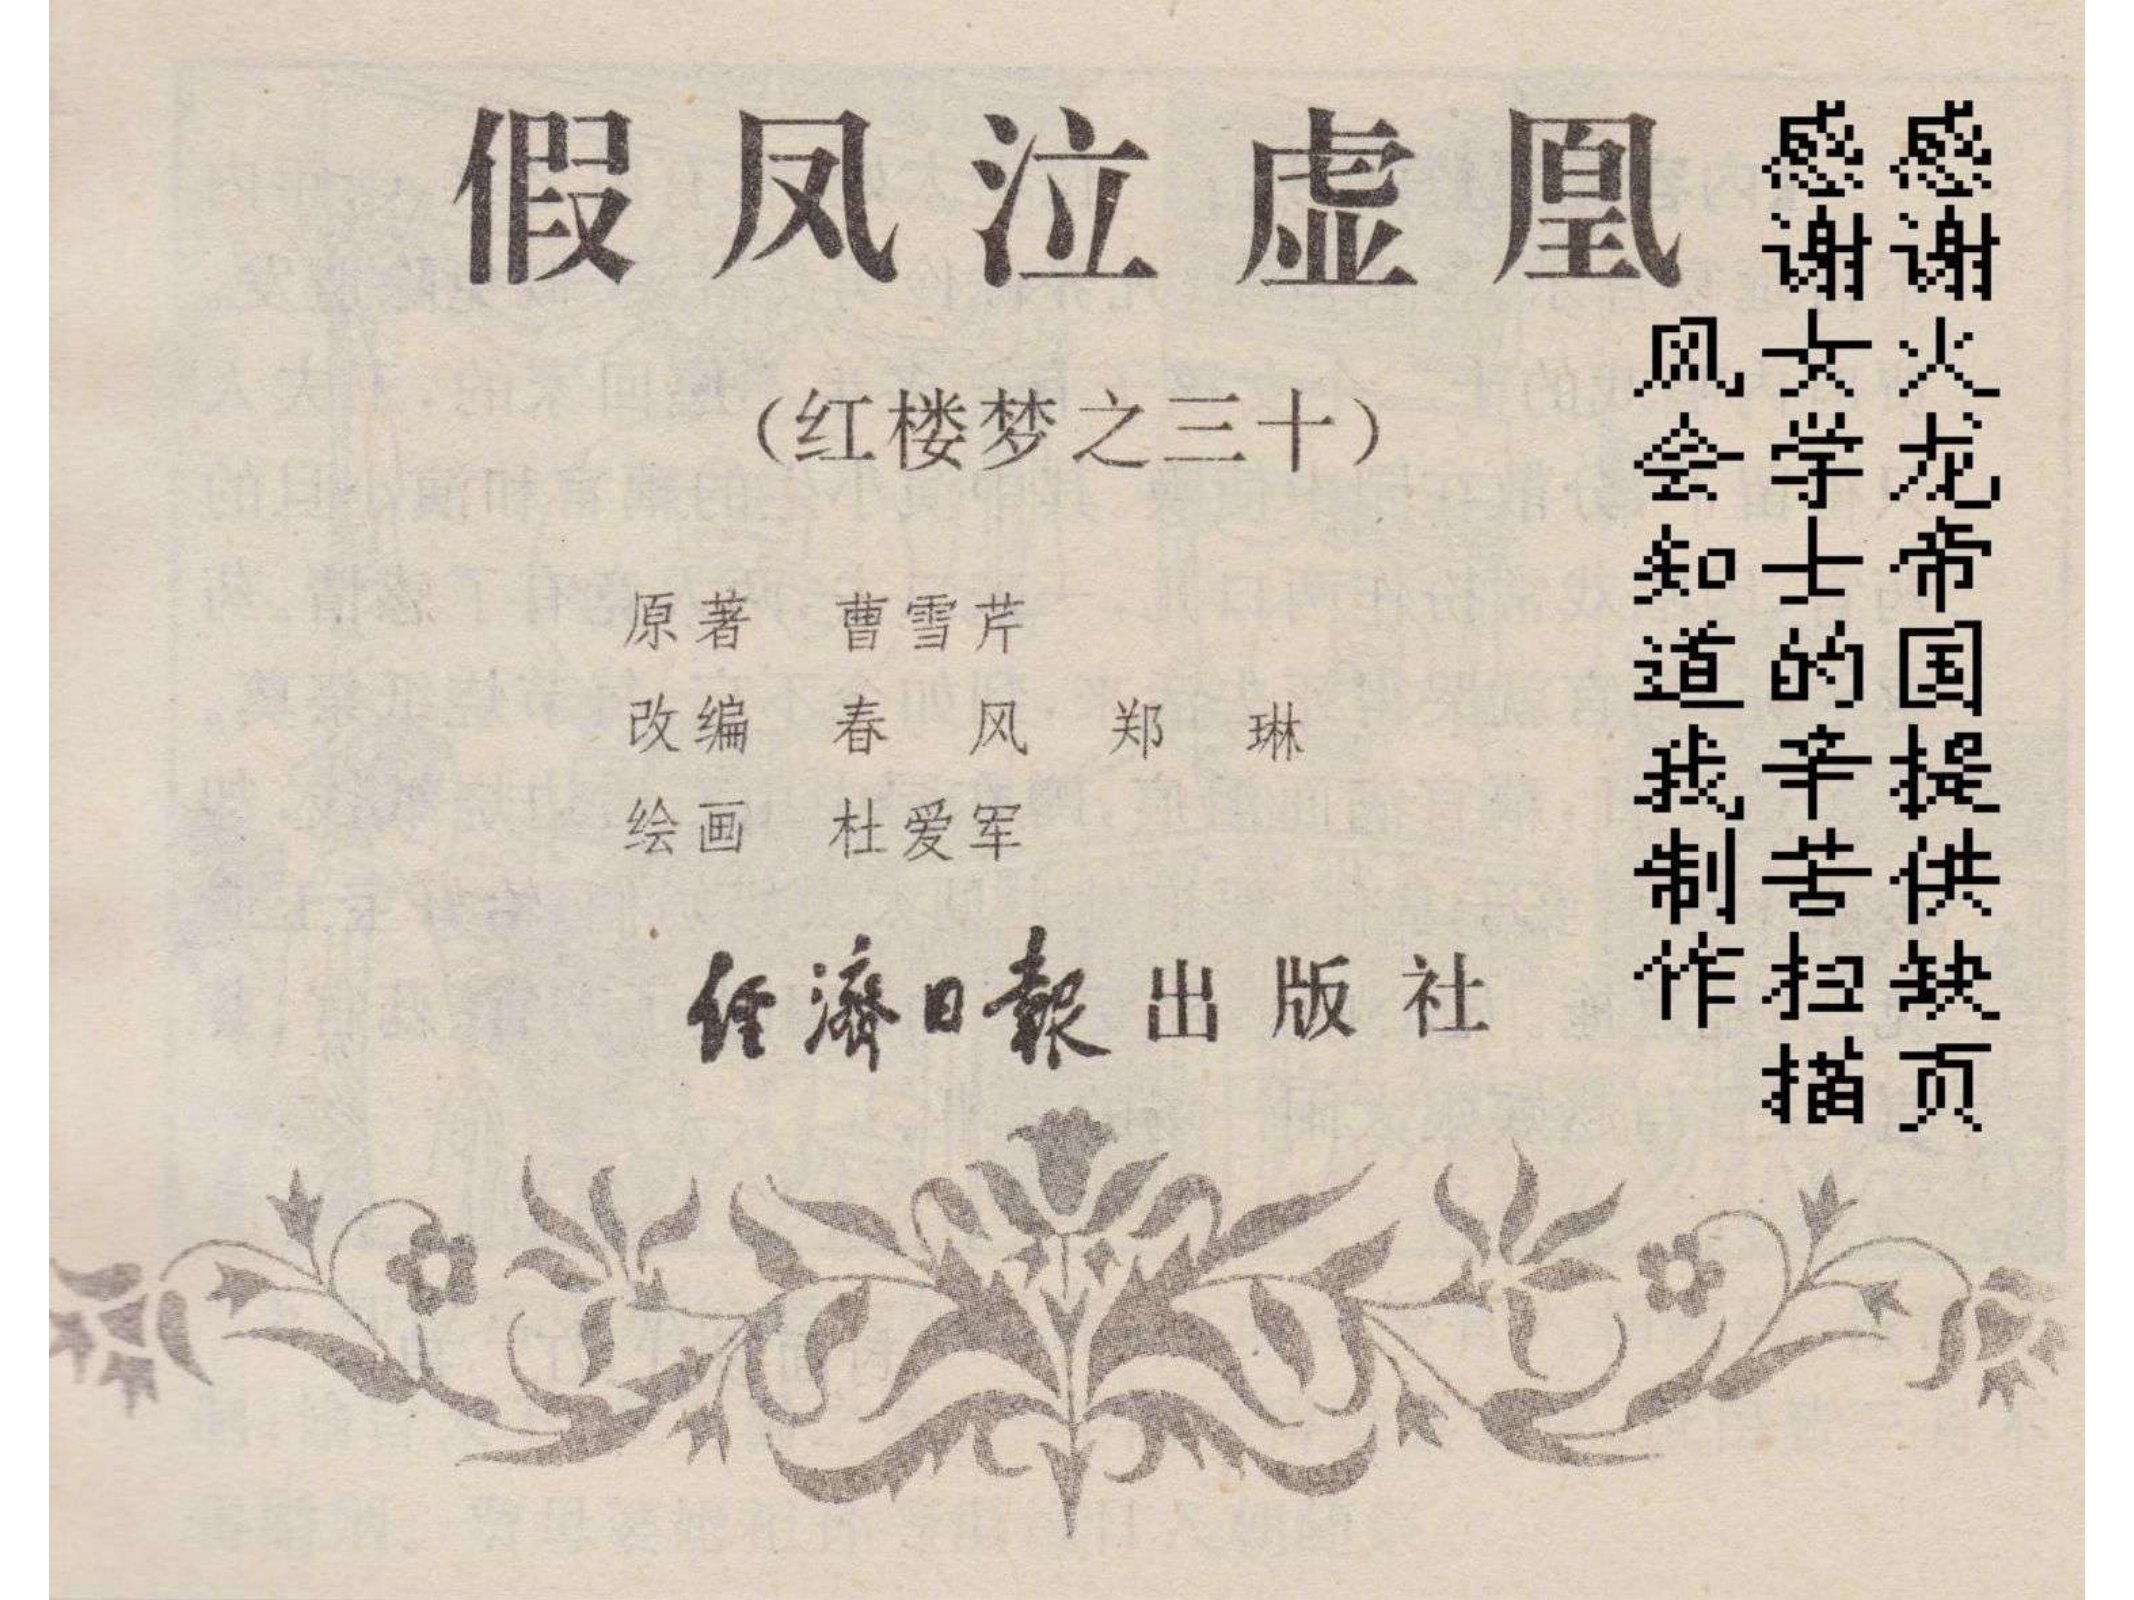 假凤泣虚凰
（红楼梦之三十）
原著 曹雪芹
改编 春风 郑琳
绘画 杜爱军
经濟日報出版社
感谢火龙帝国提供缺页
感谢女学士的辛苦扫描
风会知道我制作